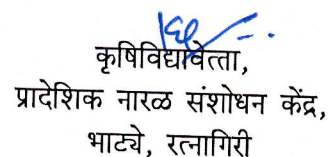 कृषिविद्यावेत्ता,
प्रादेशिक नारळ संशोधन केंद्र,
भाट्ये, रत्नागिरी